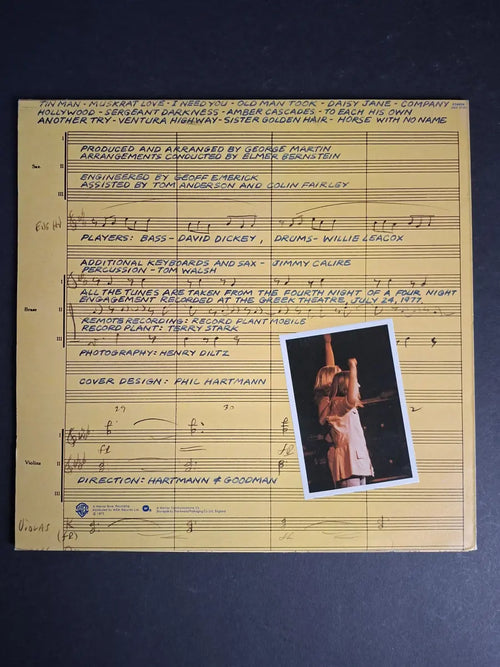 TIN MAN - MUSKRAT LOVE - I NEED YOU - OLD MAN TOOK - DAISY JANE - COMPANY
HOLLYWOOD - SERGEANT DARKNESS - AMBER CASCADES - TO EACH HIS OWN
ANOTHER TRY - VENTURA HIGHWAY - SISTER GOLDEN HAIR - HORSE WITH NO NAME
I
PRODUCED AND ARRANGED BY GEORGE MARTIN
ARRANGEMENTS CONDUCTED BY ELMER BERNSTEIN
Sax
II
ENGINEERED BY GEOFF EMERICK
ASSISTED BY TOM ANDERSON AND COLIN FAIRLEY
III
PLAYERS: BASS - DAVID DICKEY, DRUMS - WILLIE LEACOX
ADDITIONAL KEYBOARDS AND SAX - JIMMY CALIRE
PERCUSSION - TOM WALSH
I
ALL THE TUNES ARE TAKEN FROM THE FOURTH NIGHT OF A FOUR NIGHT
ENGAGEMENT RECORDED AT THE GREEK THEATRE, JULY 24, 1977
Brass II
REMOTE RECORDING: RECORD PLANT MOBILE
RECORD PLANT: TERRY STARK
III
PHOTOGRAPHY: HENRY DILTZ
COVER DESIGN: PHIL HARTMANN
29 30 2
I
Violins II
DIRECTION: HARTMANN & GOODMAN
III
Violas